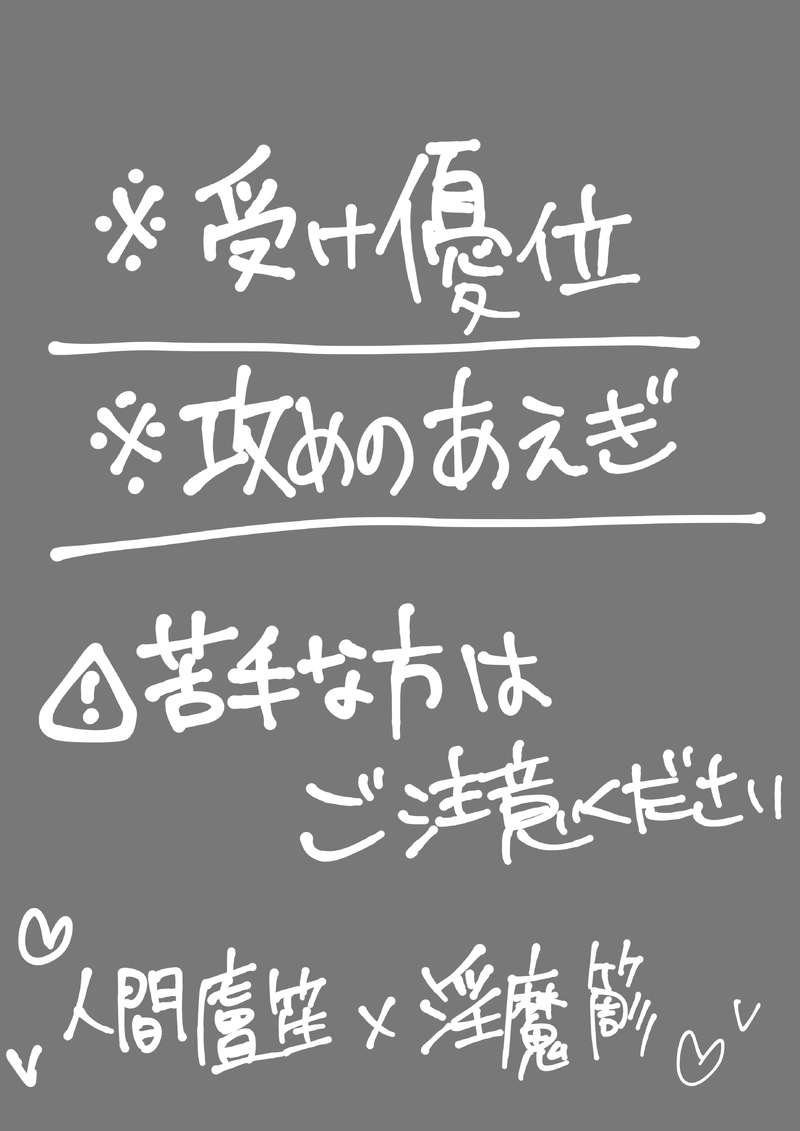 ※受け優位
※攻めのあえぎ
⚠苦手な方は
ご注意ください
人間盧笙×淫魔簓